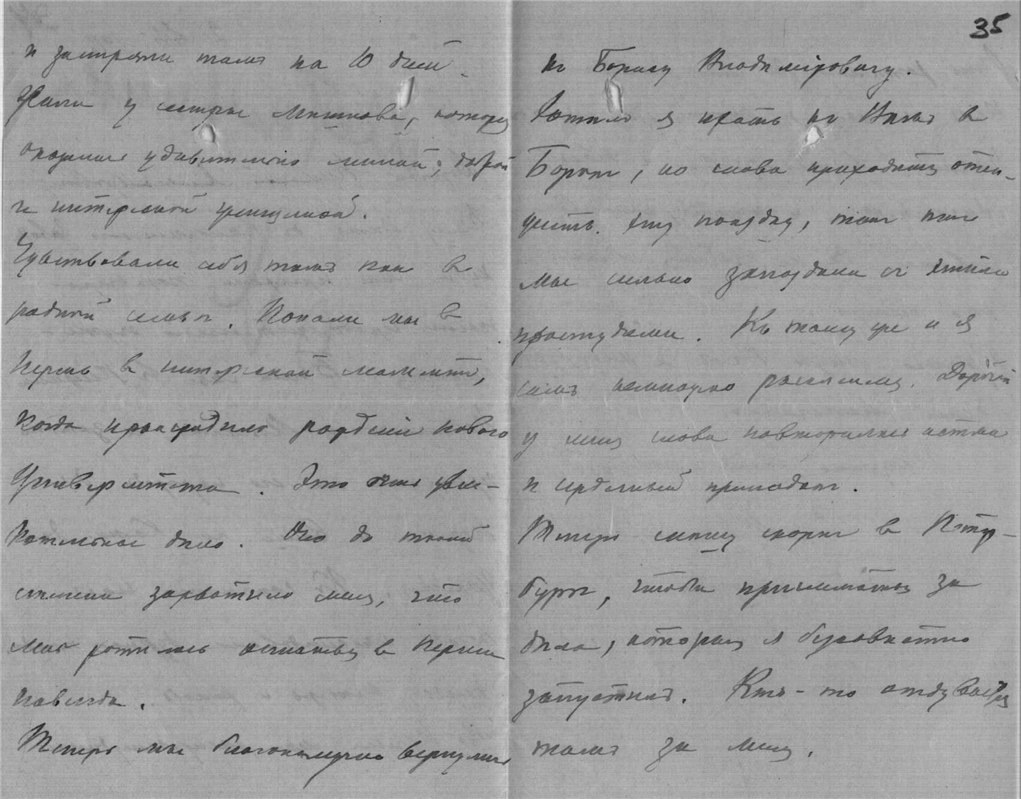 и застряли там на 10 дней.
Жили у сестры Мешкова, которая
оказалась удивительно милой, доброй
и интересной женщиной.
Чувствовали себя там как в
родной семье. Попали мы в
Пермь в интересный момент,
когда праздновали рождение нового
Университета. Это было увле-
кательное дело. Оно до такой
степени захватило меня, что
мне хотелось остаться в Перми
навсегда.
Теперь мы благополучно вернулись
35
къ Борису Владиміровичу.
Хотел я ехать к Вам в
Борок, но снова приходится отсро-
чить эту поездку, так как
мы сильно запоздали и
простудили. Къ тому же и я
сам немножко расклеился. Дорогой
у меня снова повторилась астма
и сердечный припадок.
Теперь спешу скорее в Петер-
бург, чтобы приниматься за
дела, которые я
запустил. Кто-то отдувается
там за меня.